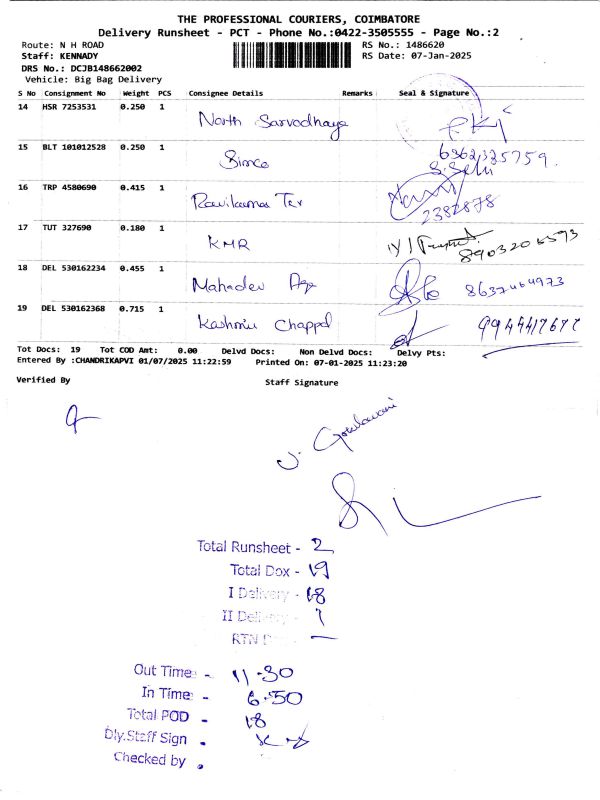 THE PROFESSIONAL COURIERS, COIMBATORE
Delivery Runsheet - PCT - Phone No.:0422-3505555 - Page No.:2
Route: N H ROAD RS No.: 1486620
Staff: KENNADY RS Date: 07-Jan-2025
DRS No.: DCJB148662002
Vehicle: Big Bag Delivery
S No Consignment No Weight PCS Consignee Details Remarks Seal & Signature
14 HSR 7253531 0.250 1 North Sarvodhaya
15 BLT 101012528 0.250 1 Simco
16 TRP 4580690 0.415 1 2382878
17 TUT 327690 0.180 1 KMR
18 DEL 530162234 0.455 1 Mahadev
19 DEL 530162368 0.715 1 Chappal
Tot Docs: 19 Tot COD Amt: 0.00 Delvd Docs: Non Delvd Docs: Delvy Pts:
Entered By :CHANDRIKAPVI 01/07/2025 11:22:59 Printed On: 07-01-2025 11:23:20
Verified By Staff Signature
Total Runsheet - 2
Total Dox - 19
I Delivery - 18
II Delivery - 1
RTN
Out Time - 11-30
In Time - 6-50
Total POD - 18
Dly.Staff Sign -
Checked by -